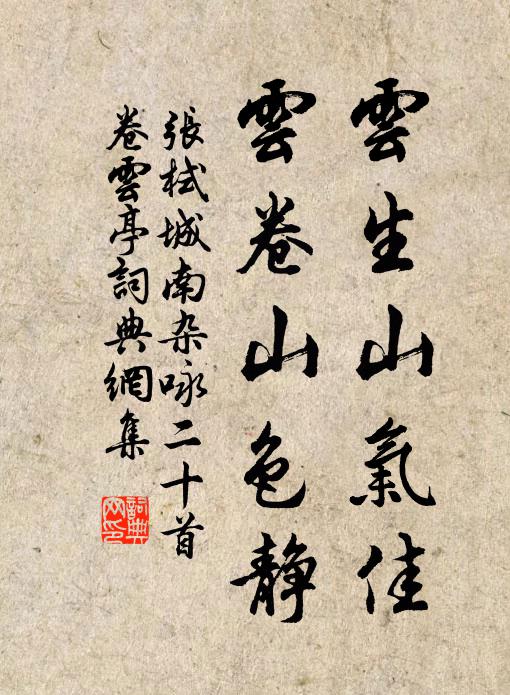 雲生山氣佳
雲卷山色静
張栻城南杂咏二十首
卷雲亭詞典網集
詞典网印